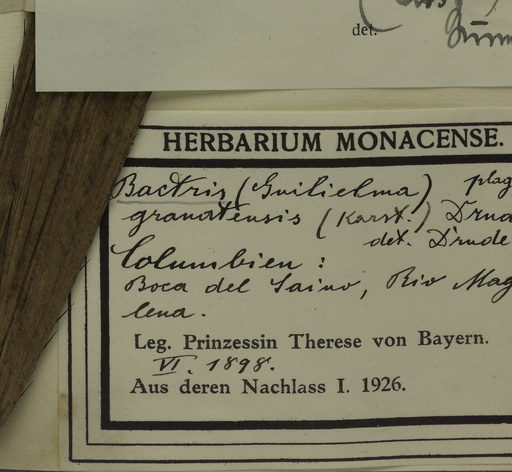 det.
HERBARIUM MONACENSE.
Bactris (Guilielma) plag
granatensis (Karst.) Drud
det. Drude
Columbien :
Boca del Saino, Rio Mag
lena.
Leg. Prinzessin Therese von Bayern.
VI. 1898.
Aus deren Nachlass I. 1926.